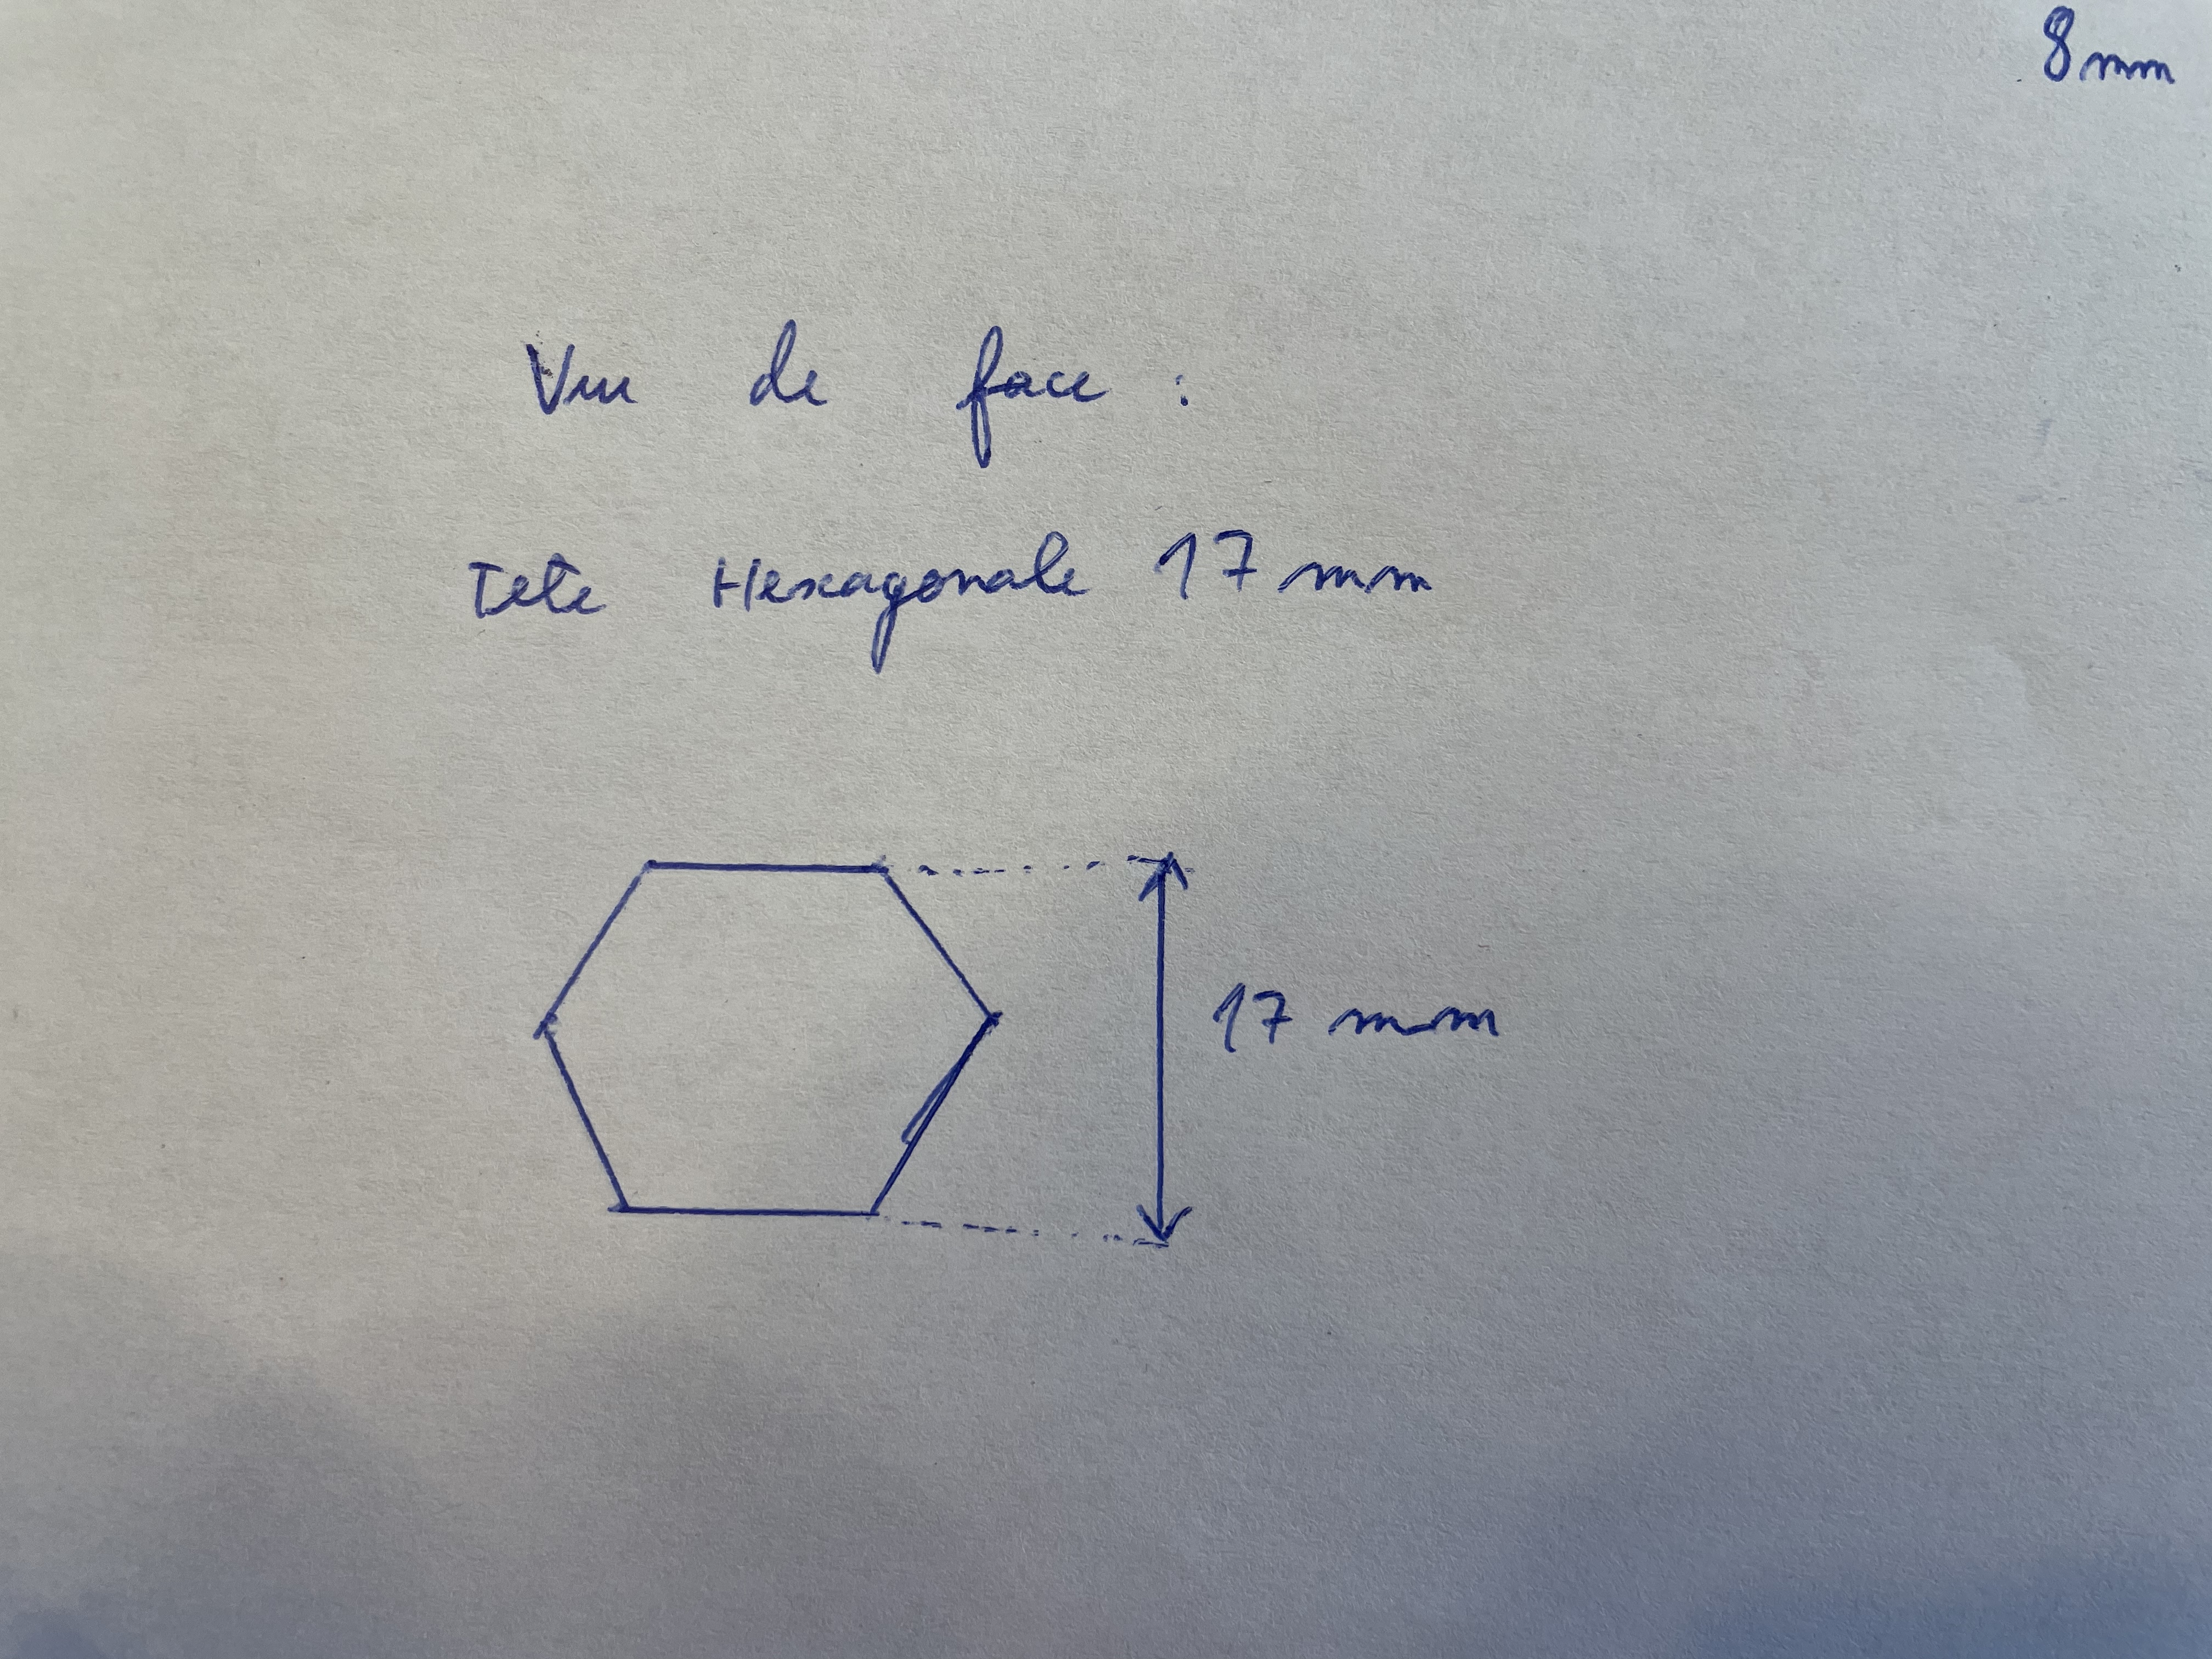 8 mm
Vue de face :
Tete Hexagonale 17 mm
17 mm